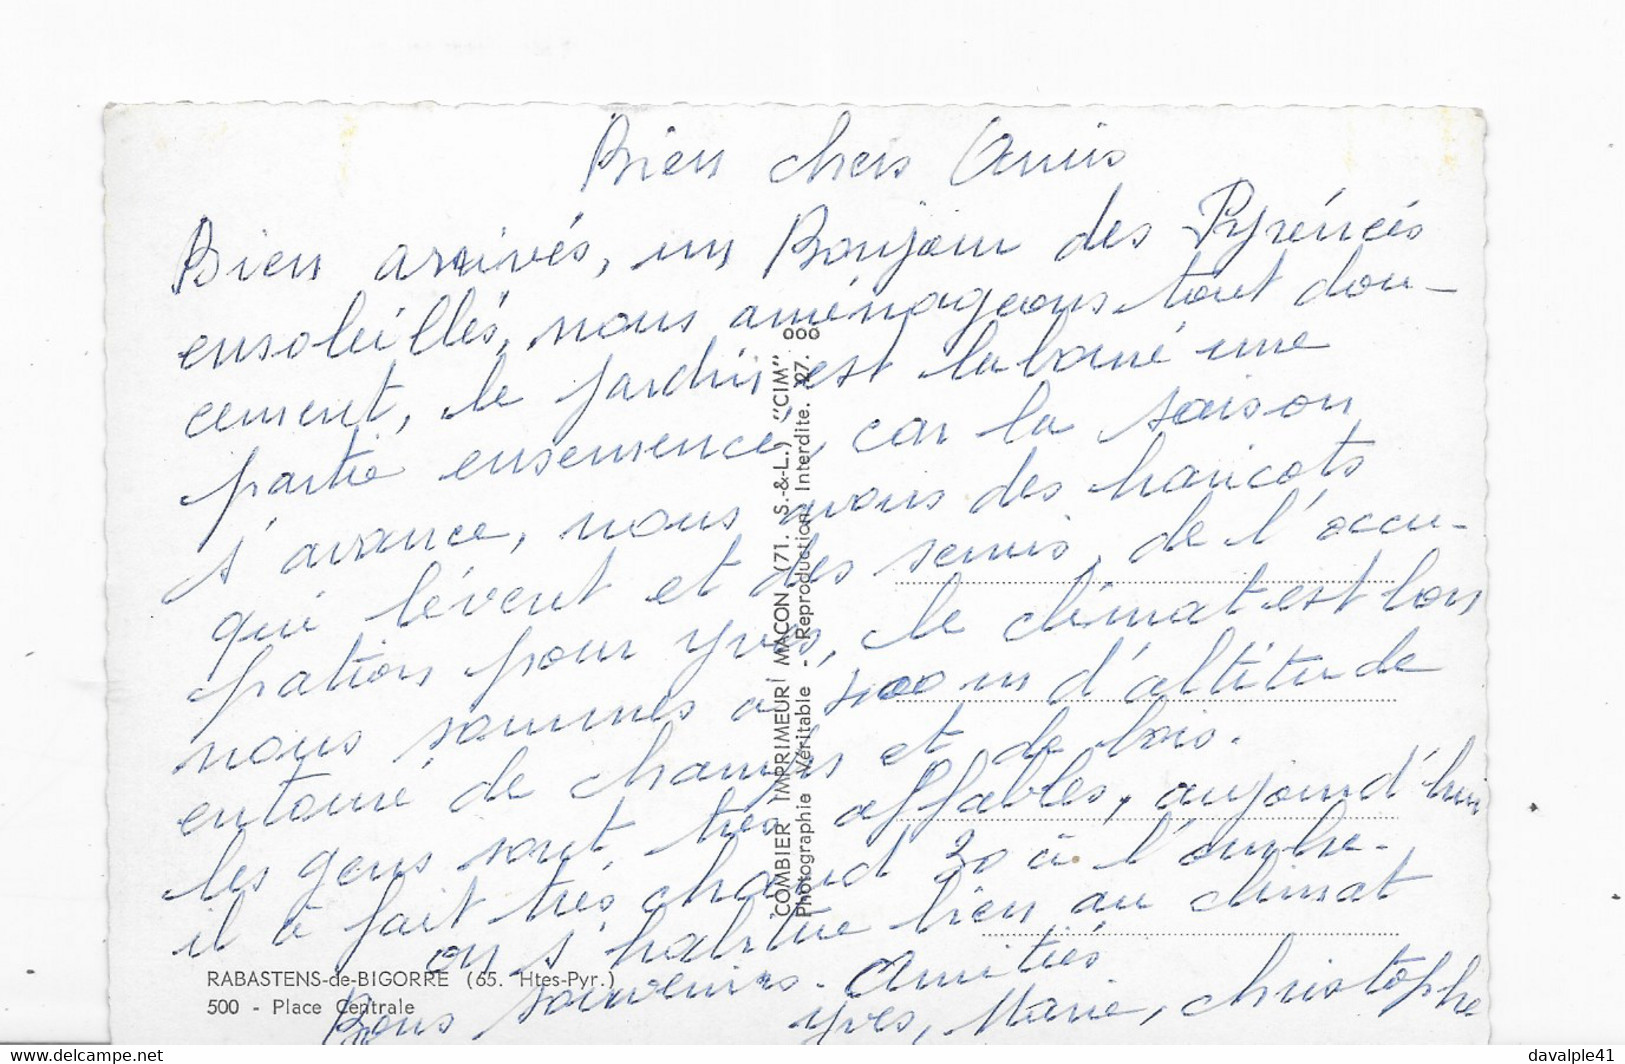 Bien chers Amis
Bien arrivés, un Bonjour des Pyrénées
ensoleillés, nous aménageons tout dou-
cement, le jardin est labouré une
partie ensemencé, car la saison
s'avance, nous avons des haricots
qui lèvent et des semis, de l'occu-
pation pour Yves, le climat est bon
nous sommes à 300 m d'altitude
entouré de champs et de bois.
les gens sont très affables, aujourd'hui
il à fait très chaud 30 à l'ombre.
on s'habitue bien au climat
Bons souvenirs. Amitiés
Yves, Marie, Christophe
RABASTENS-de-BIGORRE (65. Htes-Pyr.)
500 - Place Centrale
COMBIER IMPRIMEUR MACON (71. S.-&-L.) "CIM"
Photographie Véritable - Reproduction Interdite.
delcampe.net
davalple41